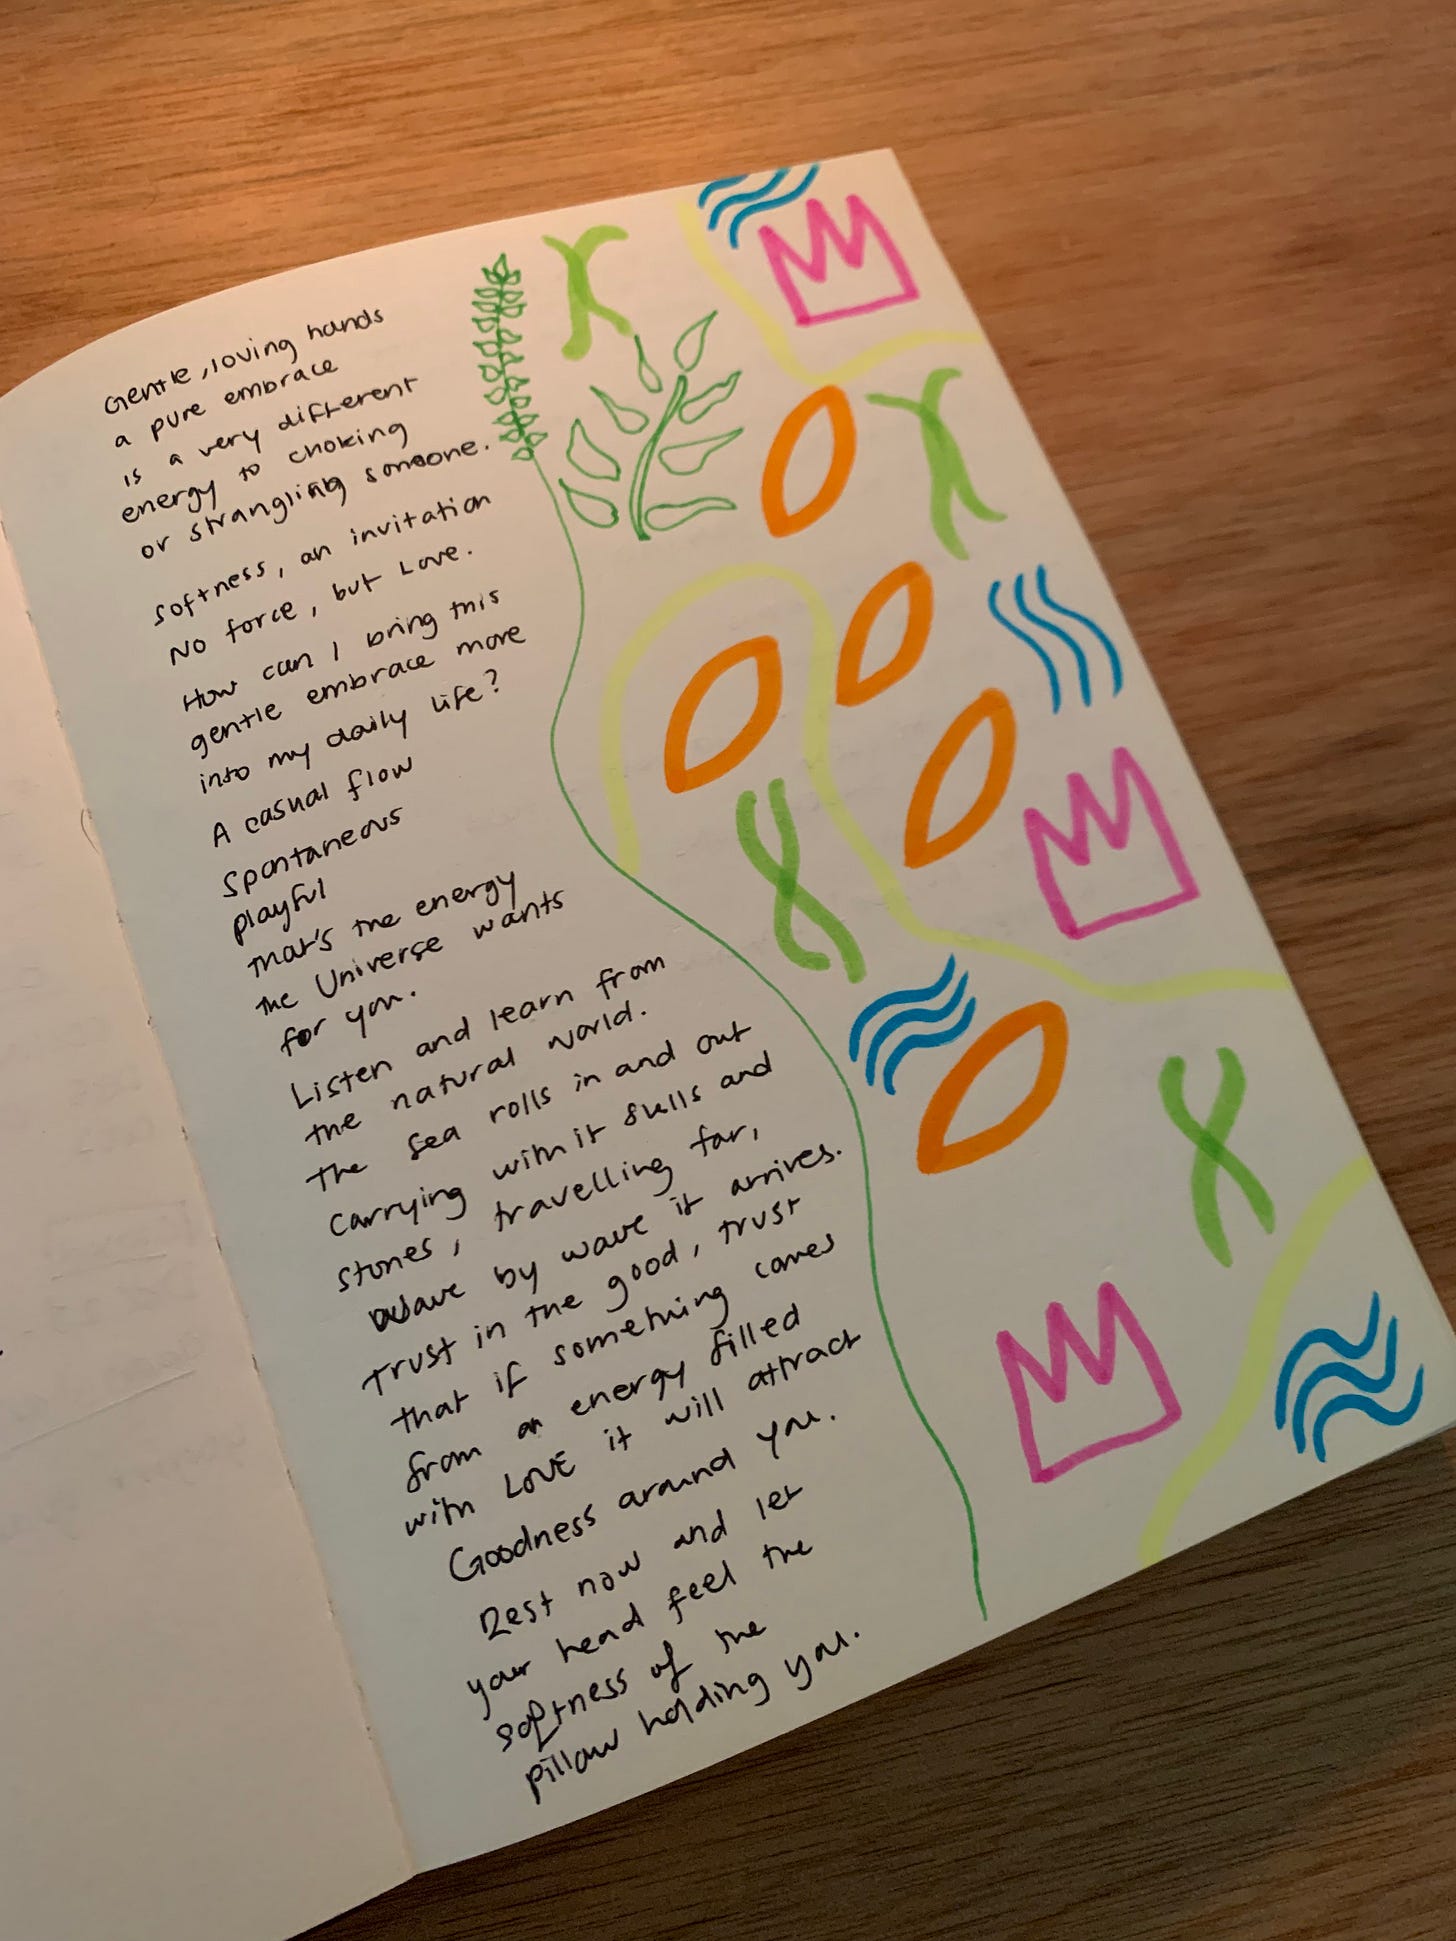 Gentle, loving hands
a pure embrace
is a very different
energy to choking
or strangling someone.
softness, an invitation
No force, but Love.
How can I bring this
gentle embrace more
into my daily life?
A casual flow
spontaneous
playful
that's the energy
the Universe wants
for you.
Listen and learn from
the natural world.
The sea rolls in and out
carrying with it shells and
stones, travelling far,
wave by wave it arrives.
Trust in the good, trust
that if something comes
from an energy filled
with LOVE it will attract
Goodness around you.
Rest now and let
your head feel the
softness of the
pillow holding you.